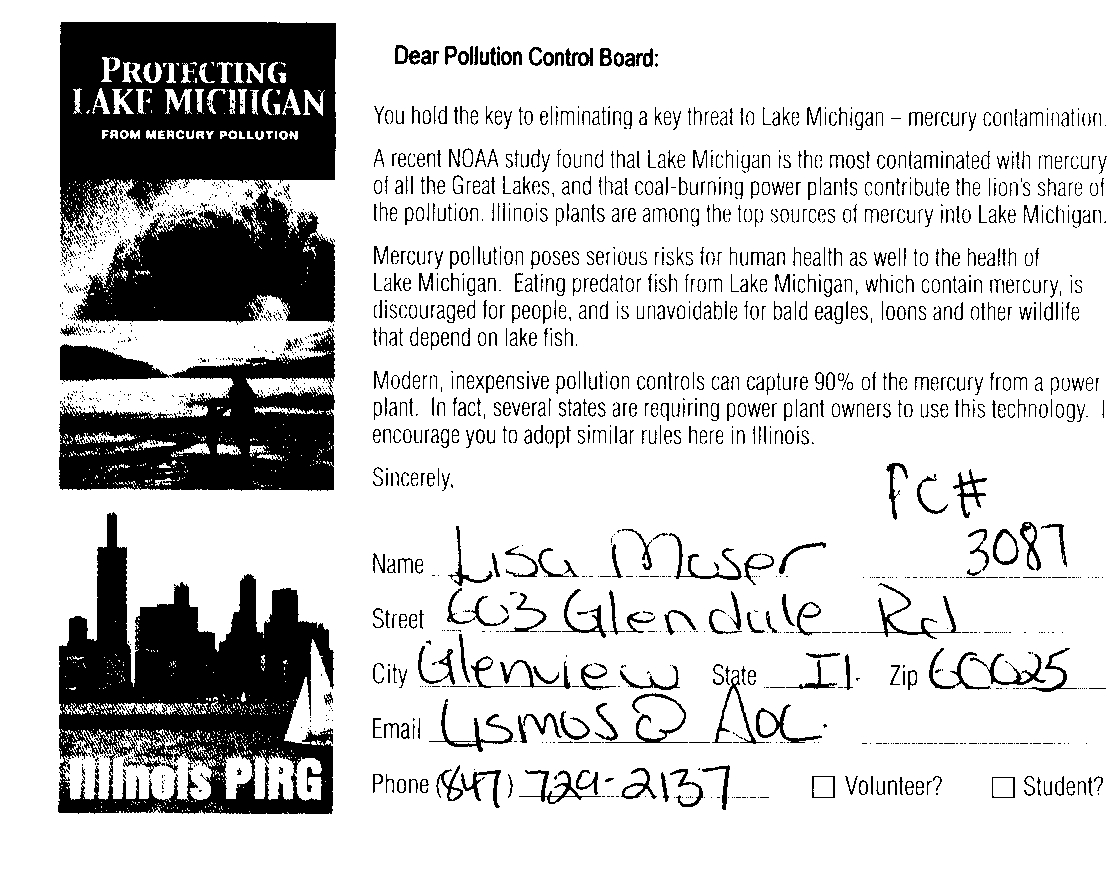 PROTECTING
LAKE MICHIGAN
FROM MERCURY POLLUTION
Illinois PIRG
Dear Pollution Control Board:
You hold the key to eliminating a key threat to Lake Michigan – mercury contamination.
A recent NOAA study found that Lake Michigan is the most contaminated with mercury
of all the Great Lakes, and that coal-burning power plants contribute the lion's share of
the pollution. Illinois plants are among the top sources of mercury into Lake Michigan.
Mercury pollution poses serious risks for human health as well to the health of
Lake Michigan. Eating predator fish from Lake Michigan, which contain mercury, is
discouraged for people, and is unavoidable for bald eagles, loons and other wildlife
that depend on lake fish.
Modern, inexpensive pollution controls can capture 90% of the mercury from a power
plant. In fact, several states are requiring power plant owners to use this technology. I
encourage you to adopt similar rules here in Illinois.
Sincerely,
PC#
3087
Name Lisa Moser
Street 603 Glendale Rd
City Glenview State Il. Zip 60025
Email Lismos@Aol.
Phone (847) 729-2137 Volunteer? Student?